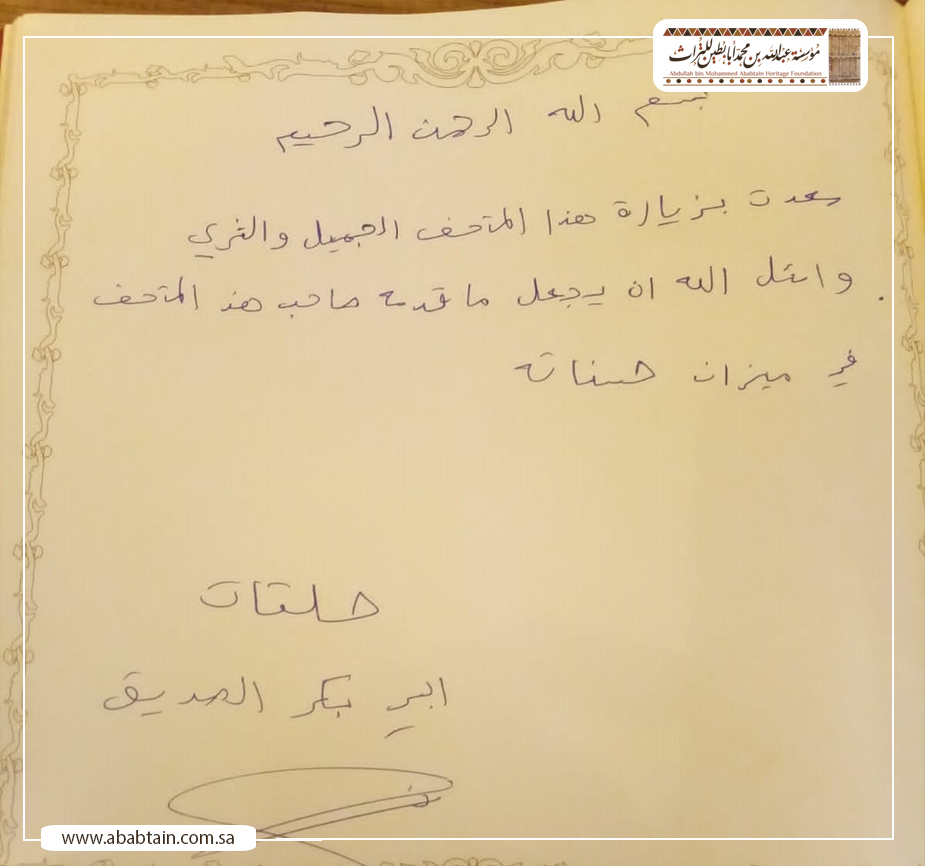 مؤسسة عبدالله بن محمد أبابطين للتراث
Abdullah bin Mohammed Ababtain Heritage Foundation
بسم الله الرحمن الرحيم
سعدت بزيارة هذا المتحف الجميل والثري
واسئل الله ان يجعل ما قدمه صاحب هذ المتحف
في ميزان حسناته
حلقات
ابي بكر الصديق
www.ababtain.com.sa